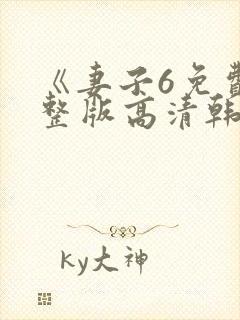 《妻子6免费
整版高清韩
ky大神